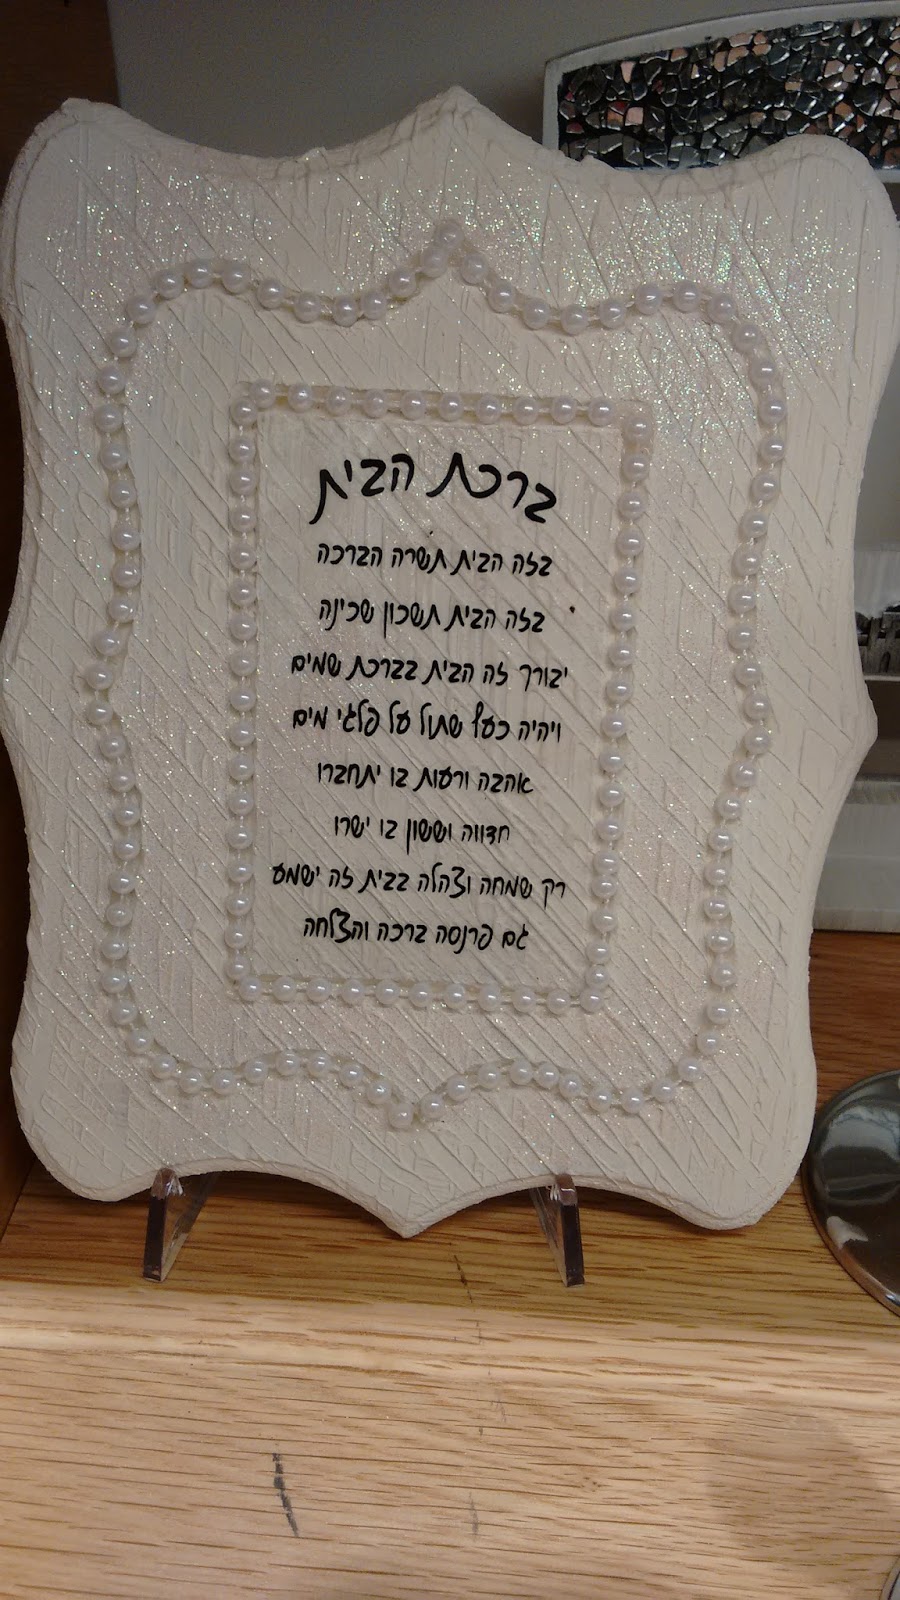 ברכת הבית
בזה הבית תשרה הברכה
בזה הבית תשכון שכינה
יבורך זה הבית בברכת שמים
ויהיה כעץ שתול על פלגי מים
אהבה ורעות בו יתחברו
חדווה וששון בו ישרו
רק שמחה וצהלה בבית זה ישמע
גם פרנסה ברכה והצלחה